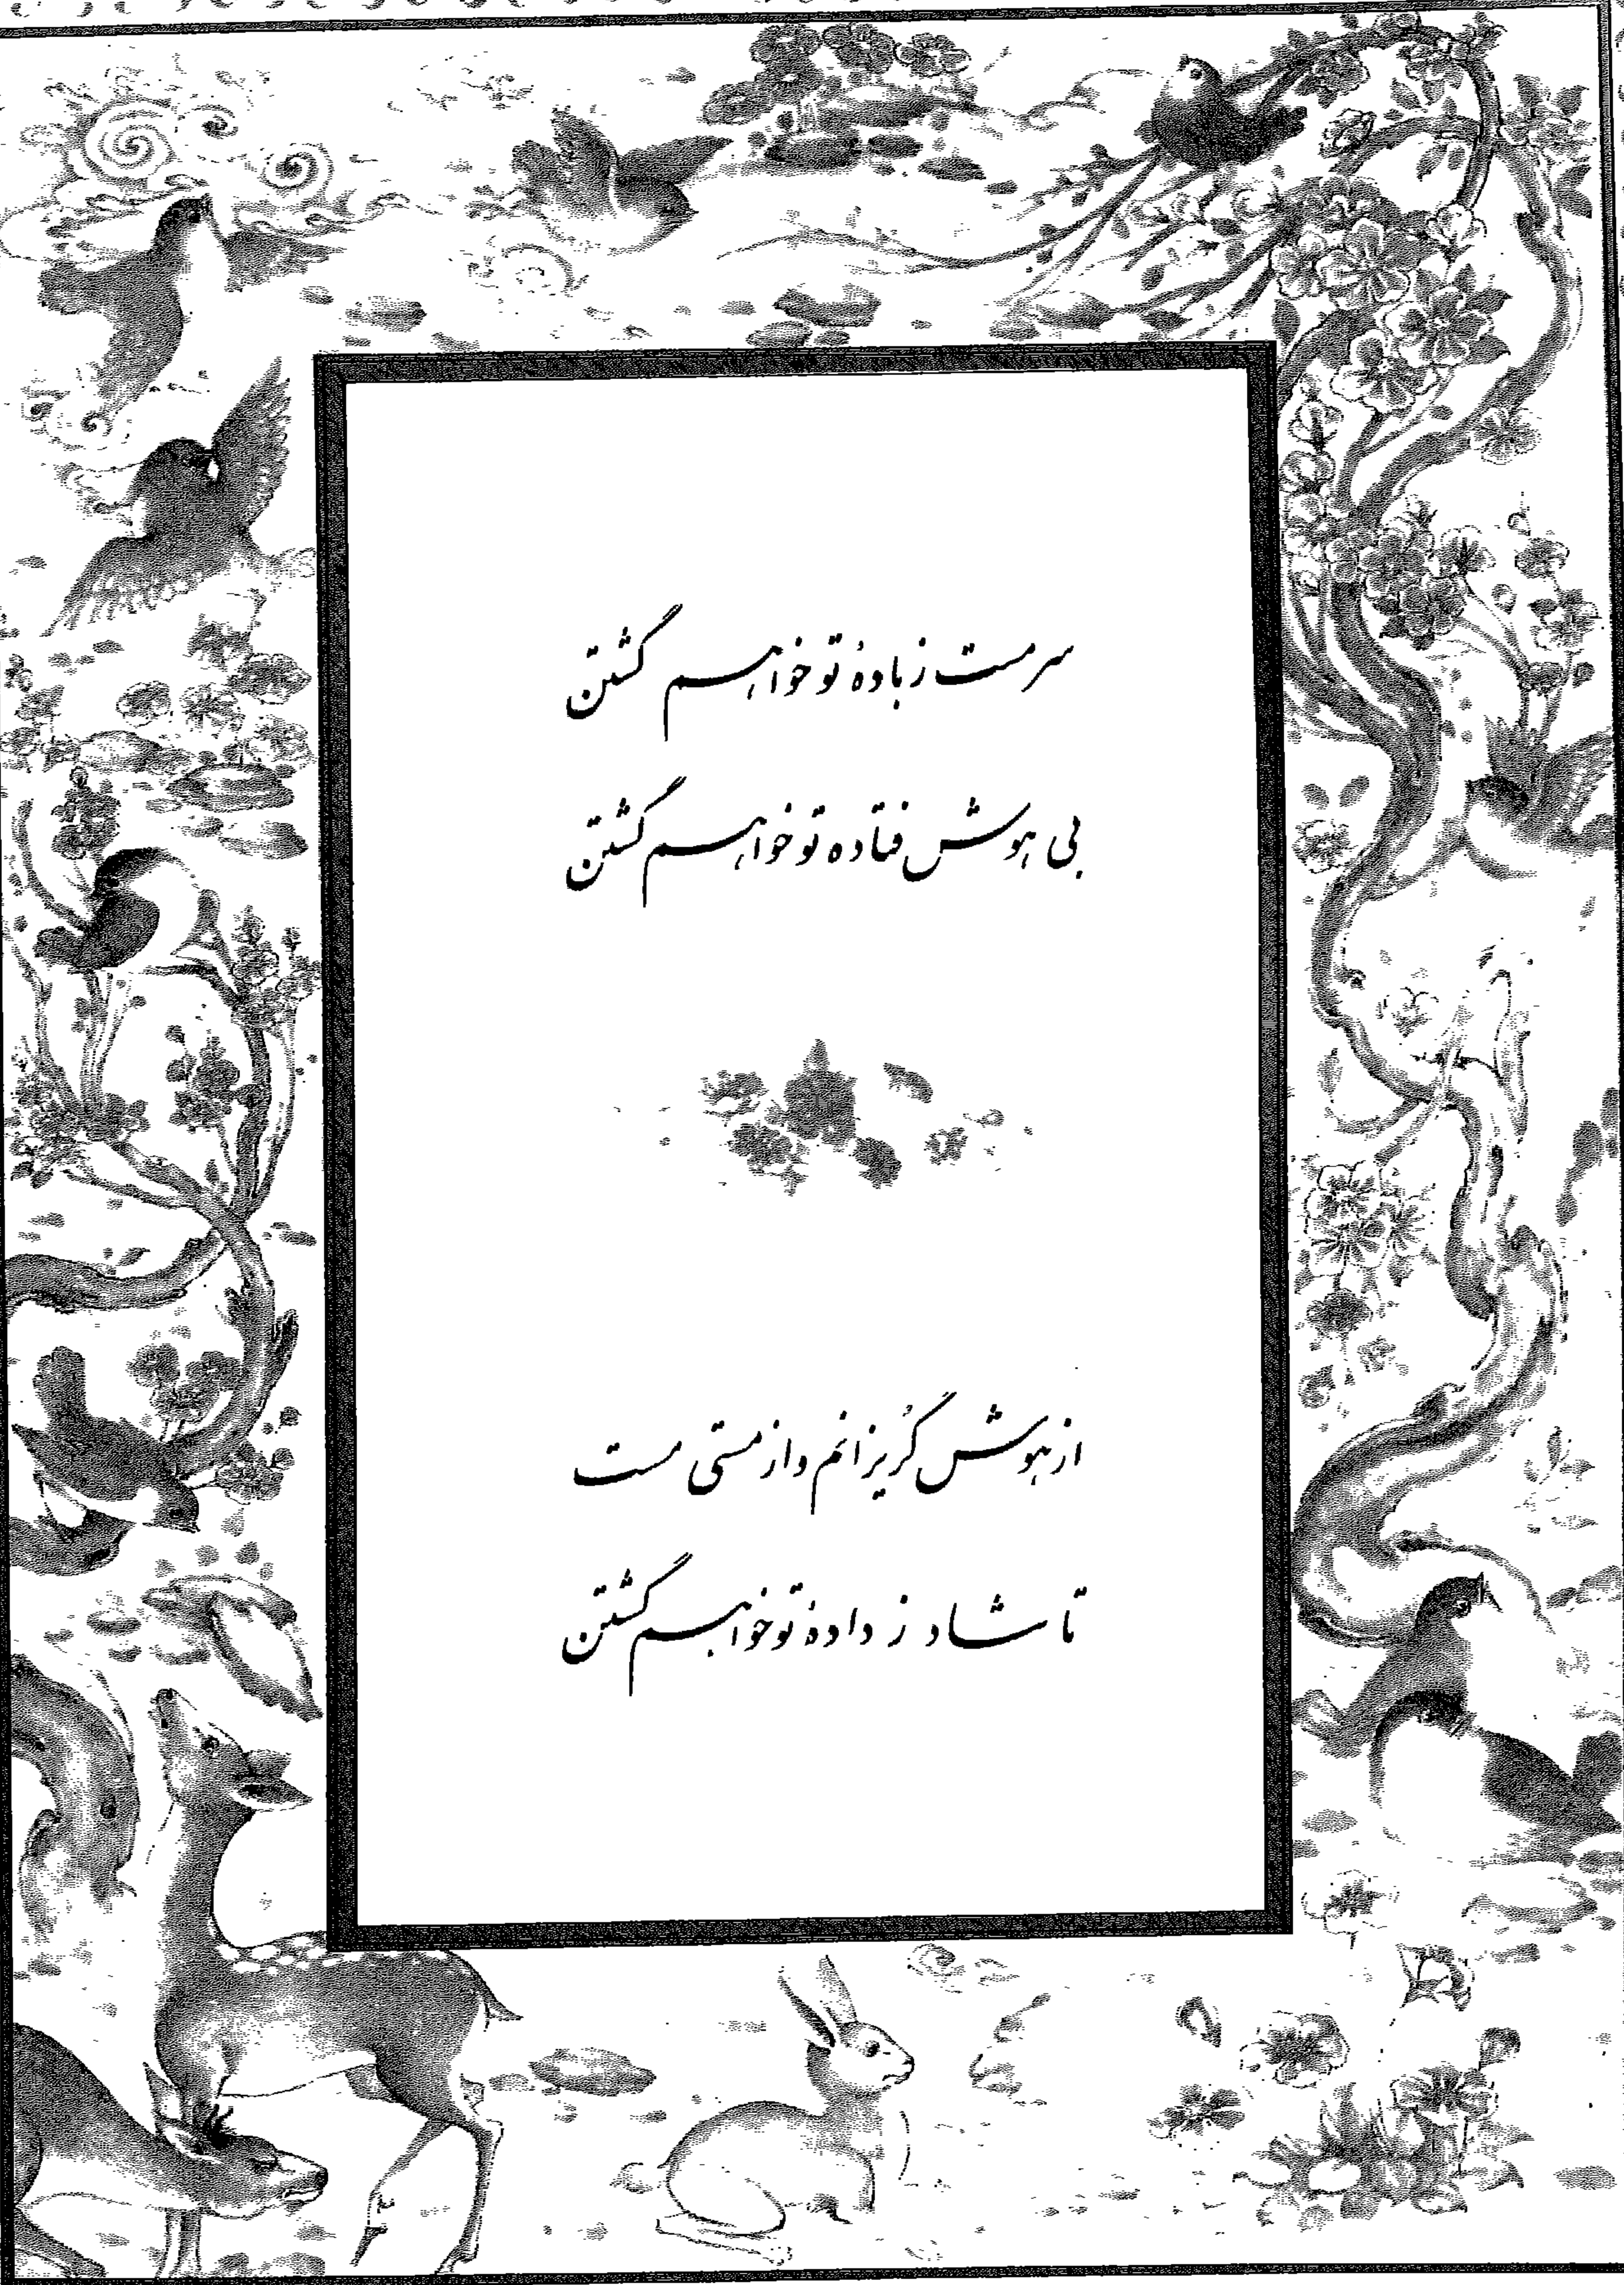 سرمست ز بادهٔ تو خواهم گشتن
بی هوش فتاده تو خواهم گشتن
از هوش گُریزانم و از مستی مست
تا شاد ز دادهٔ تو خواهم گشتن